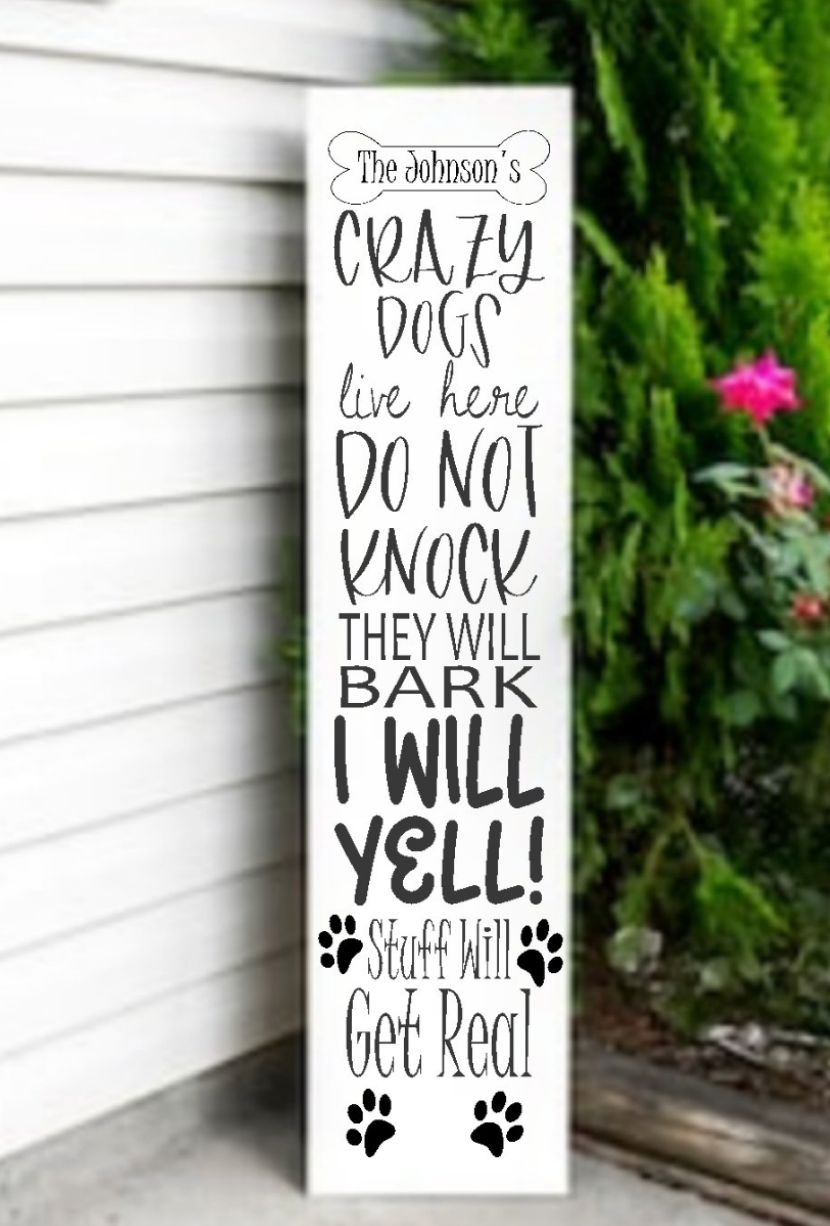 The Johnson's
CRAZY
DOGS
live here
DO NOT
KNOCK
THEY WILL
BARK
I WILL
YELL!
Stuff Will
Get Real